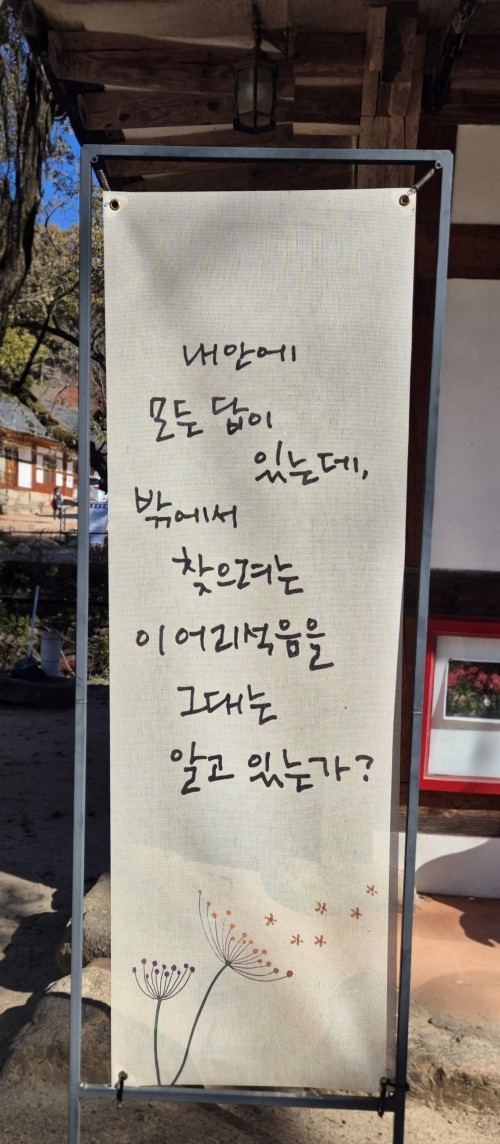 내안에
모든 답이
있는데,
밖에서
찾으려는
이 어리석음을
그대는
알고 있는가?